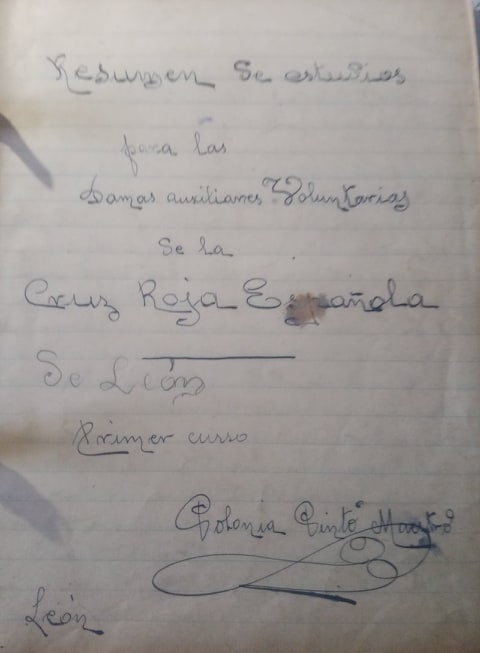 Resumen de estudios
para las
Damas auxiliares Voluntarias
de la
Cruz Roja Española
de León
Primer curso
Polonia Pinto
León